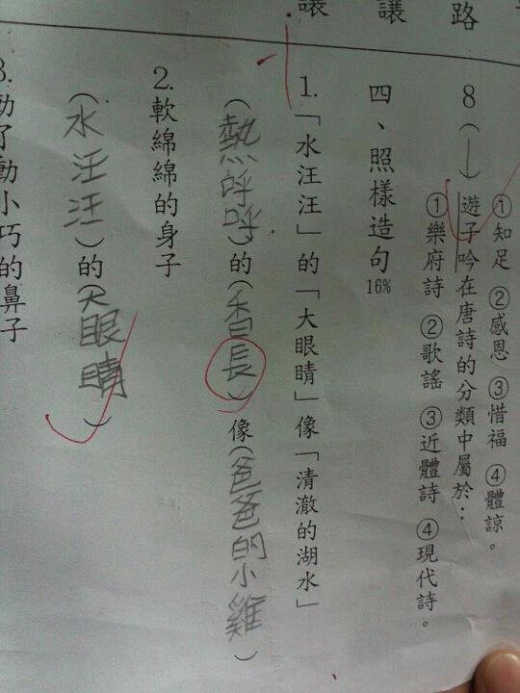 路
讓
讓
①知足 ②感恩 ③惜福 ④體諒。
8(一)遊子吟在唐詩的分類中屬於:
①樂府詩 ②歌謠 ③近體詩 ④現代詩。
四、照樣造句16%
1.「水汪汪」的「大眼睛」像「清澈的湖水」
(熱呼呼)的(香長)像(爸爸的小雞)
2.軟綿綿的身子
(水汪汪)的(大眼睛)
3.動了動小巧的鼻子